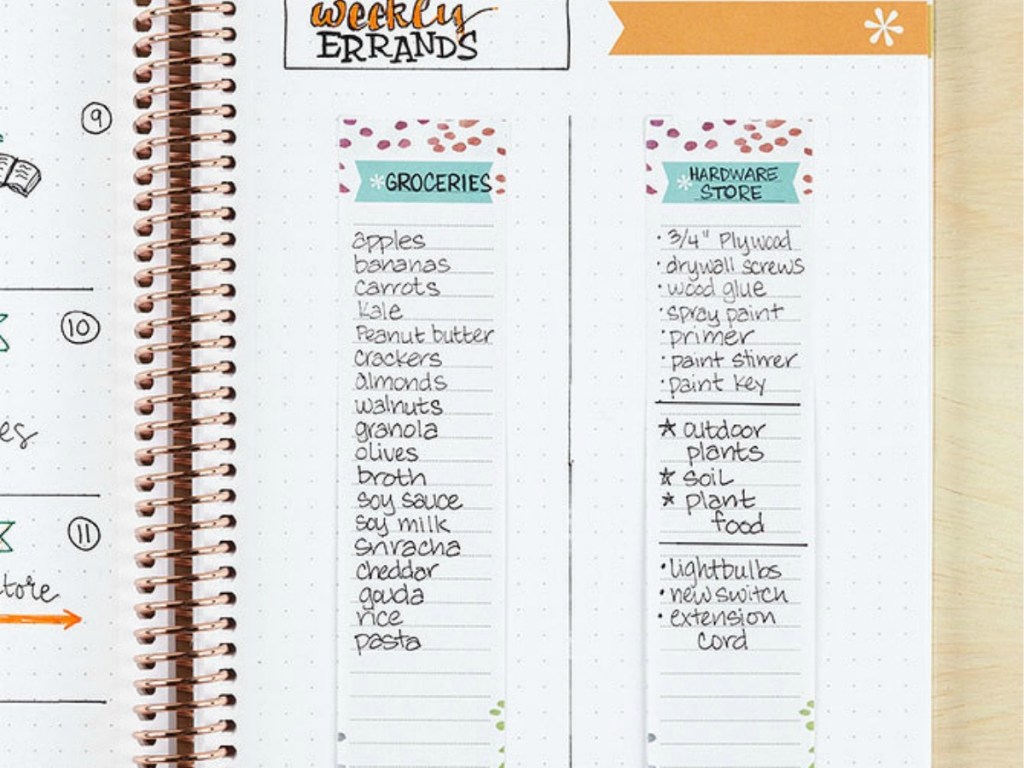 9
10
es
11
tore
weekly
ERRANDS
*GROCERIES
apples
bananas
carrots
kale
Peanut butter
crackers
almonds
walnuts
granola
olives
broth
soy sauce
soy milk
sriracha
cheddar
gouda
rice
pasta
*HARDWARE
STORE
· 3/4" Plywood
· drywall screws
· wood glue
· spray paint
· primer
· paint stirrer
· paint key
★ outdoor
plants
★ soil
★ plant
food
· lightbulbs
· new switch
· extension
cord